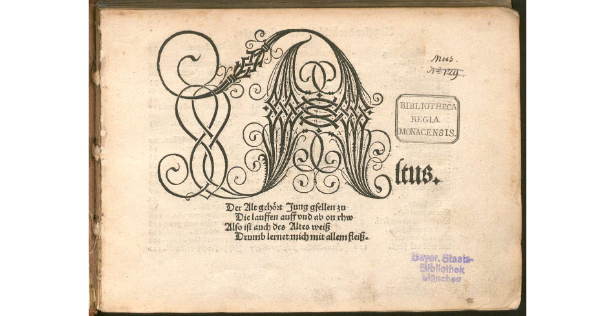 Mus.
Altus.
Der Alt gehört Jung gsellen zu
Die lauffen auff vnd ab on rhw
Also ist auch des Altes weiß
Drumb lernet mich mit allem fleiß.
BIBLIOTHECA
REGIA
MONACENSIS.
Bayer. Staats-
Bibliothek
München